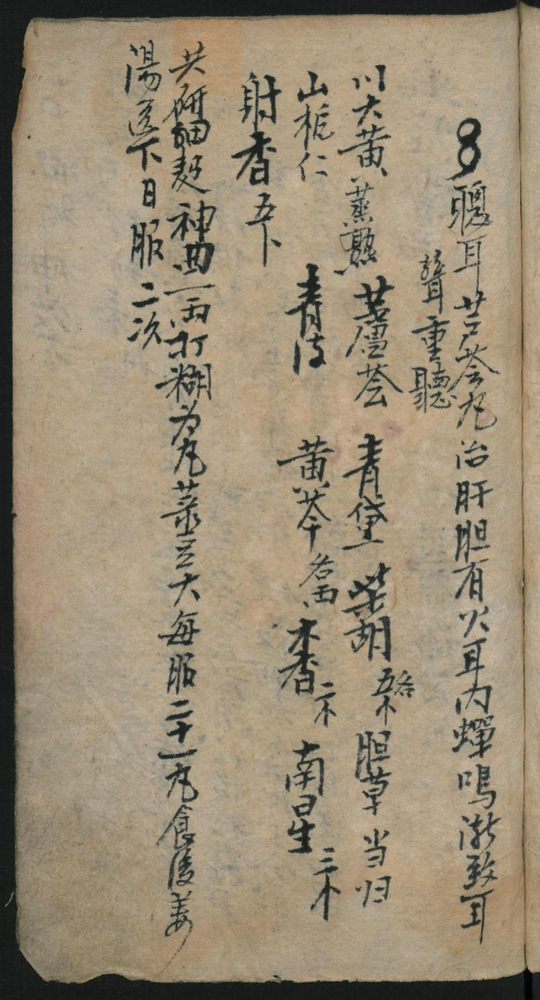 8 聰耳芦荟丸治肝胆有火耳内蟬鳴漸致耳
聾重聽
川大黄蒸熟 芦荟 青黛 柴胡各五个 胆草 当归
山栀仁 青皮 黄芩各一両 木香二个 南星三个
射香五卜
共研細麪神曲一両打糊为丸菉豆大每服二十一丸食後姜
湯送下日服二次